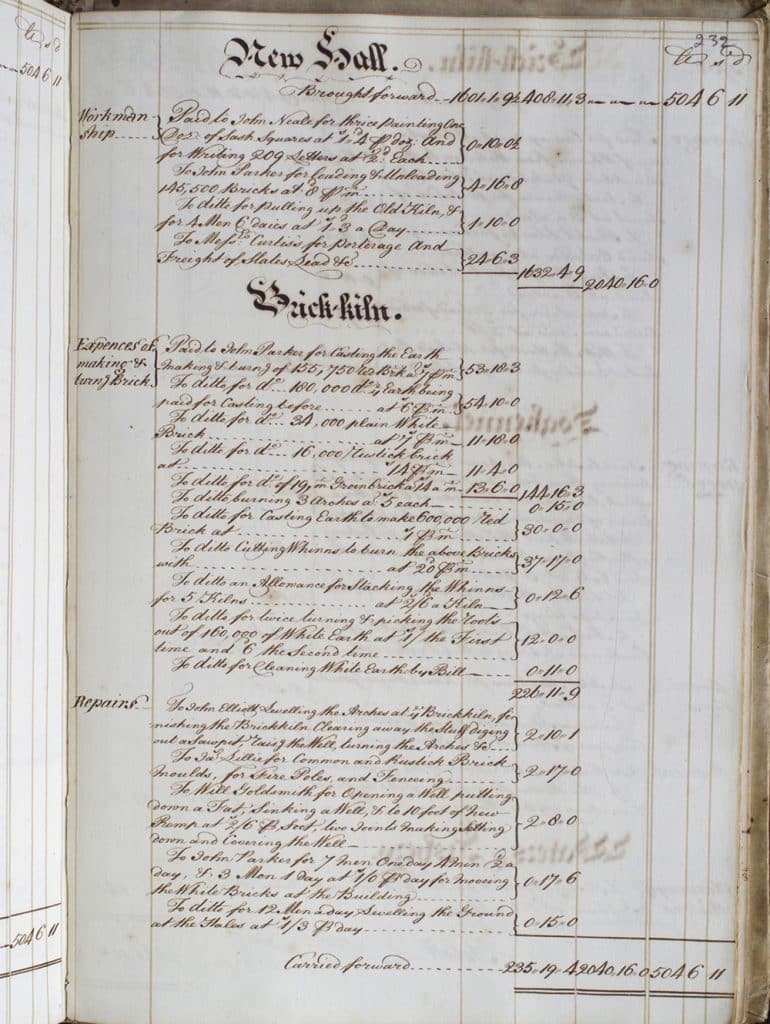 232
New Hall.
£ s d
Brought forward 1601..1..9½ 408..11..3 5046 11
Workman
ship
Paid to John Neale for thrice Painting One
Doz: of Sash Squares at 4 ⅌ doz: And
for Writing 209 Letters at 2d. Each 0=10=0½
To John Parker for Loading & Unloading
145,500 Bricks at 8 ⅌ m 4=16=8
To ditto for pulling up the Old Kiln, &
for 4 Men 6 daies at 1/3 a Day 1=10=0
To Messrs. Curtiss for Porterage And
Freight of Slates Lead &c 24=6=3
1632=4=9 2040=16=0
Brick-kiln.
Expences of
making &
burng Brick
Paid to John Parker for Casting the Earth
making & burng of 155,750 Red Brk a 7 ⅌ m 53=18=3
To ditto for do. 180,000 do. ye Earth being
paid for Casting before at 6 ⅌ m 54=10=0
To ditto for do. 34,000 plain White
Brick at 7 ⅌ m 11=18=0
To ditto for do. 16,000 Rustick brick
at 14 ⅌ m 11=4=0
To ditto for do. of 19 m Greinbrick a 14 a m 13=6=0 144=16=3
To ditto burning 3 Arches a 5 each 0=15=0
To ditto for Casting Earth to make 600,000 Red
Brick at ⅌ m 30=0=0
To ditto Cutting Whinns to burn the above Bricks
with at 20 ⅌ m 37=17=0
To ditto an Allowance for Stacking the Whinns
for 5 Kilns at 2/6 a Kiln 0=12=6
To ditto for twice turning & picking the Roots
out of 160,000 of White Earth at 1/ the First
time and 6 the Second time 12=0=0
To ditto for Cleaning White Earth by Bill 0=11=0
226=11=9
Repairs
To John Elliott Levelling the Arches at ye Brickkiln, fi-
nishing the Brickkiln Clearing away the Stuff diging
out a Sawpit, the Well, turning the Arches &c 2=10=1
To Jas. Lillie for Common and Rustick Brick
Moulds, for Fire Poles, and Fenceing 2=17=0
To Will Goldsmith for Opening a Well putting
down a Fat, Sinking a Well, & to 10 foot of New
Pemp at 2/6 ⅌ foot, two Joents making Setting
down and Covering the Well 2=8=0
To John Parker for 7 men One day 4 men ½ a
day, & 3 Men 1 day at 1/0 ⅌ day for moveing
the White Bricks at the Building 0=17=6
To ditto for 12 Men a day Levelling the Ground
at the Hales at 1/3 ⅌ day 0=15=0
Carried forward 235=19=4 2040=16=0 5046 11
£ s d
5046 11
5046 11